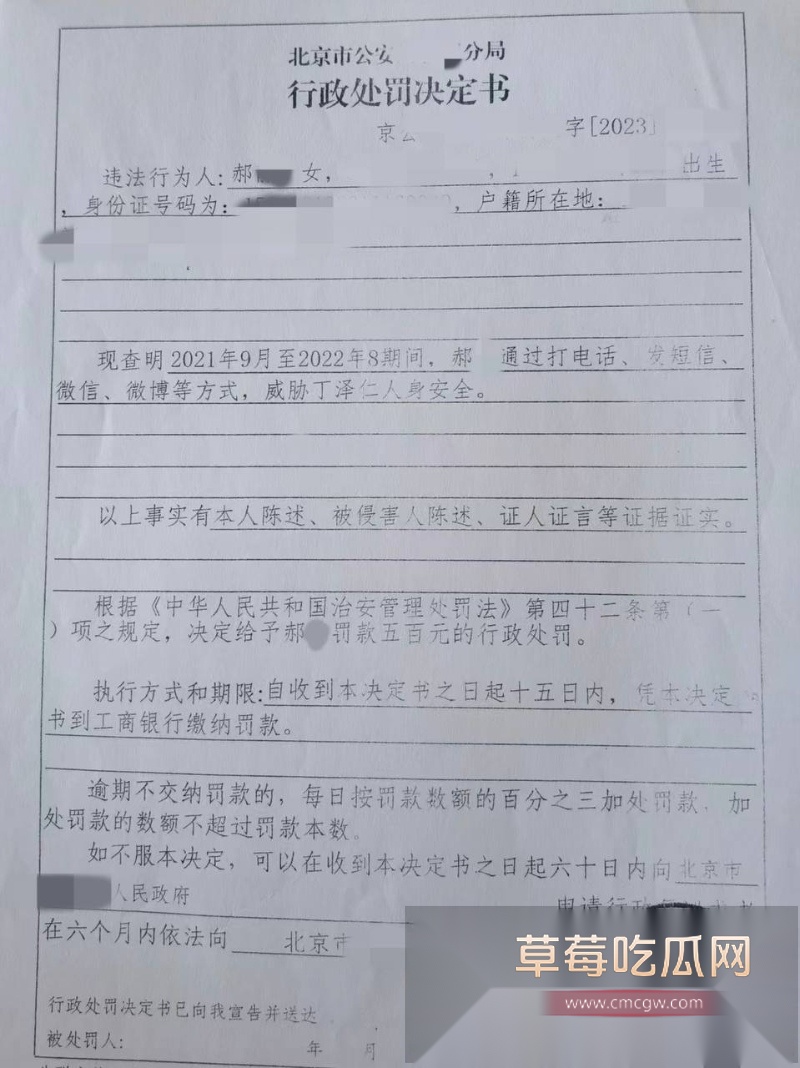 北京市公安 分局
行政处罚决定书
京公 字[2023]
违法行为人:郝 女, , 出生
,身份证号码为: ,户籍所在地:
现查明2021年9月至2022年8期间,郝 通过打电话、发短信、
微信、微博等方式,威胁丁泽仁人身安全。
以上事实有本人陈述、被侵害人陈述、证人证言等证据证实。
根据《中华人民共和国治安管理处罚法》第四十二条第(一
)项之规定,决定给予郝 罚款五百元的行政处罚。
执行方式和期限:自收到本决定书之日起十五日内,凭本决定
书到工商银行缴纳罚款。
逾期不交纳罚款的,每日按罚款数额的百分之三加处罚款,加
处罚款的数额不超过罚款本数。
如不服本决定,可以在收到本决定书之日起六十日内向北京市
人民政府
申请行政
在六个月内依法向 北京市
行政处罚决定书已向我宣告并送达
被处罚人: 年 月
草莓吃瓜网
www.cmcgw.com